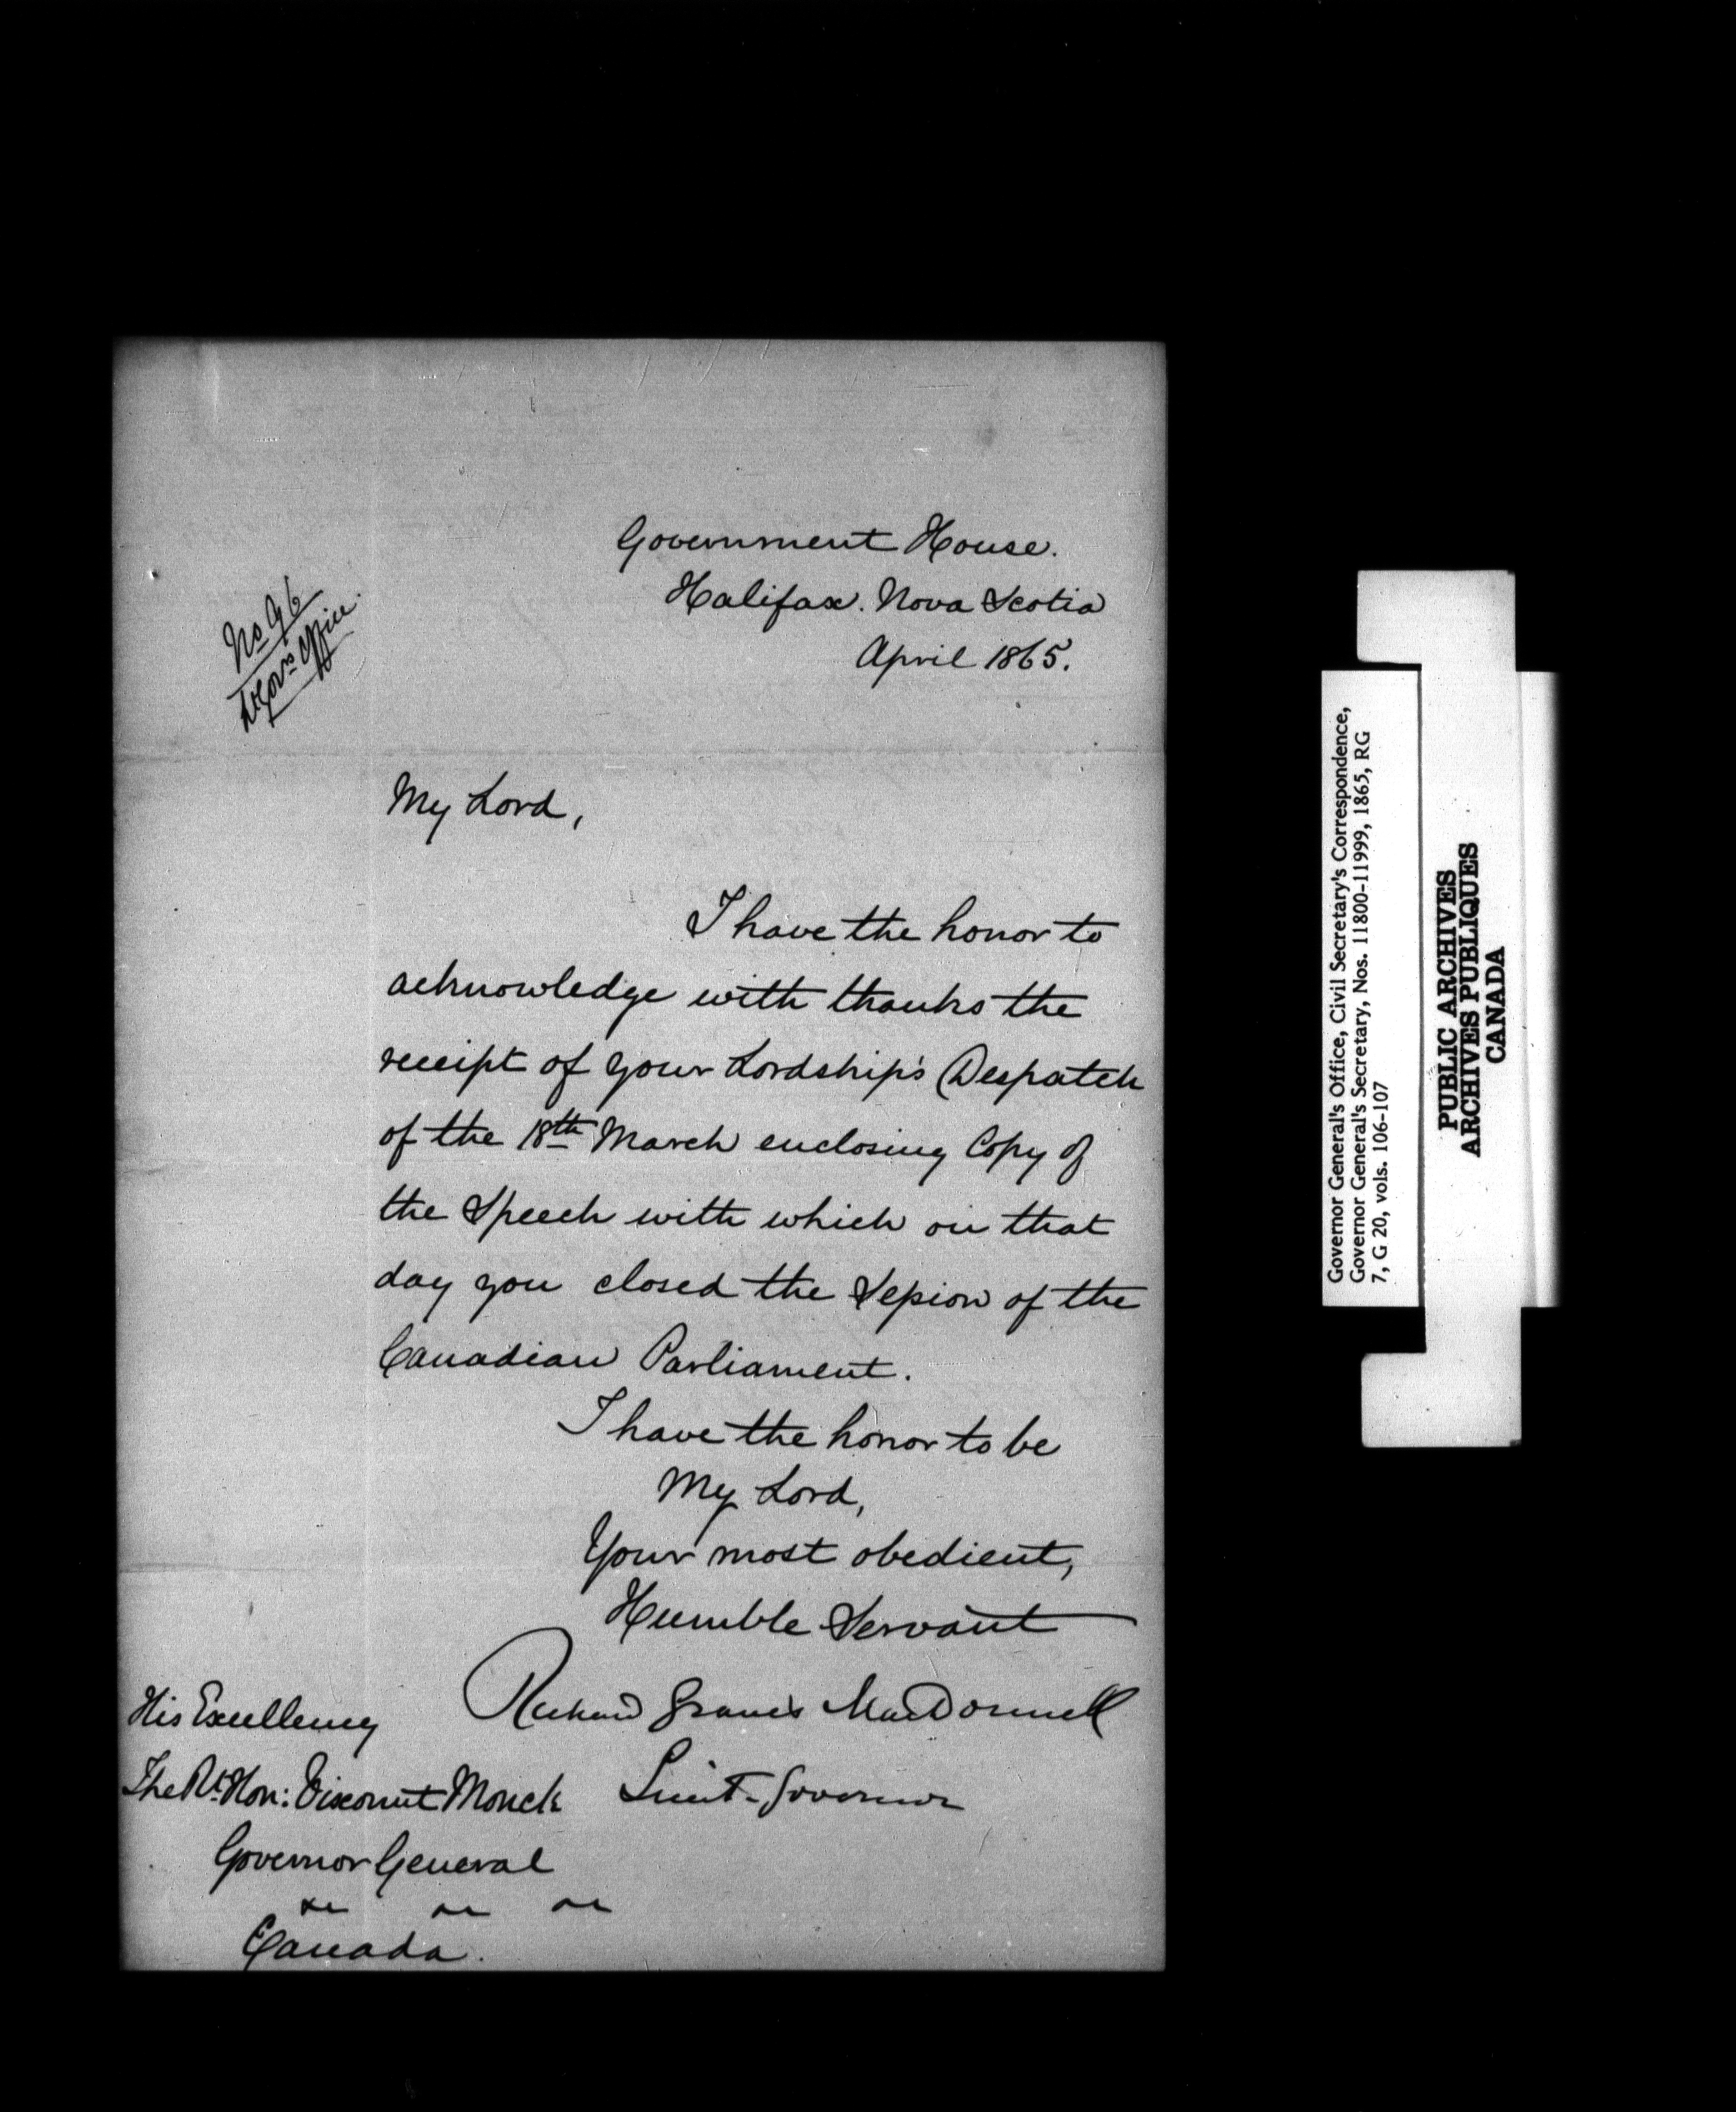 Government House.
Halifax. Nova Scotia
April 1865.
No 96
Lt Govrs Office.
My Lord,
I have the honor to
acknowledge with thanks the
receipt of your Lordship's Despatch
of the 18th March enclosing Copy of
the Speech with which on that
day you closed the Session of the
Canadian Parliament.
I have the honor to be
My Lord,
Your most obedient,
Humble Servant
Richard Graves MacDonnell
Lieut. Governor
His Excellency
The Rt. Hon: Viscount Monck
Governor General
&c &c &c
Canada.
Governor General's Office, Civil Secretary's Correspondence,
Governor General's Secretary, Nos. 11800-11999, 1865, RG
7, G 20, vols. 106-107
PUBLIC ARCHIVES
ARCHIVES PUBLIQUES
CANADA